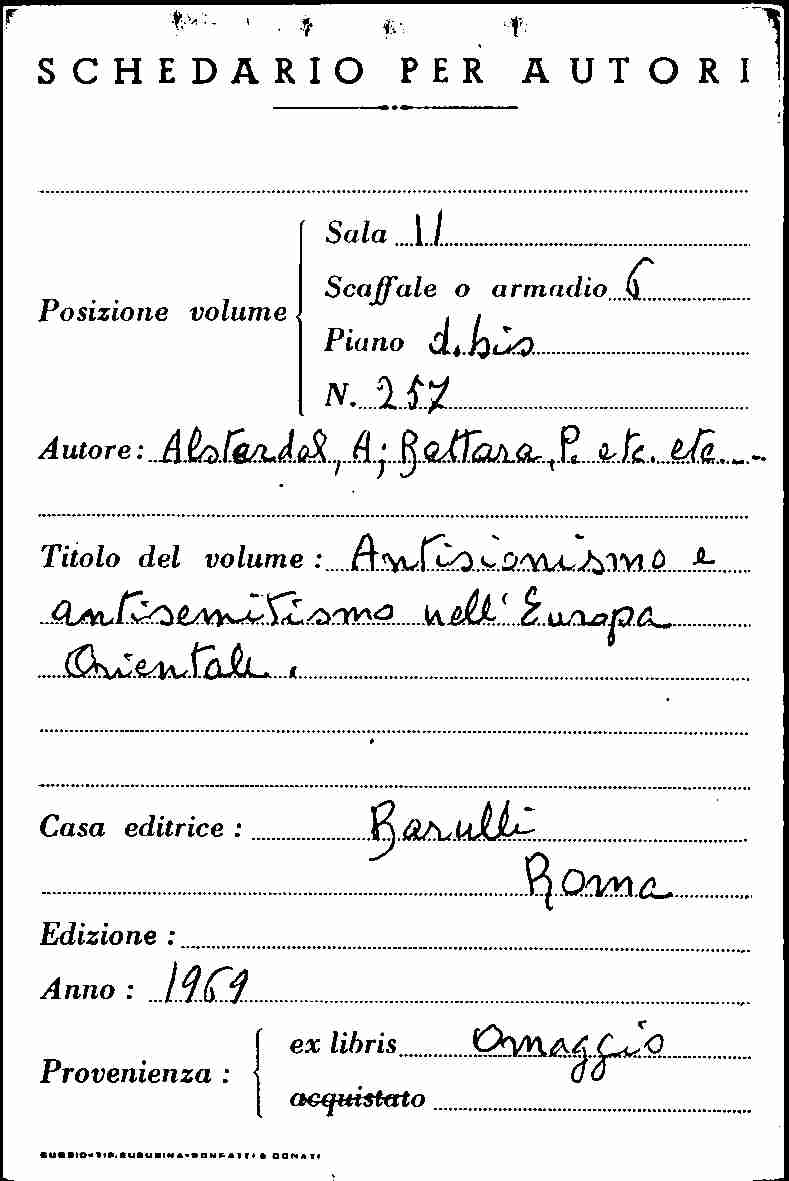 SCHEDARIO PER AUTORI
Posizione volume
Sala 11
Scaffale o armadio 6
Piano d.bis
N. 257
Autore: Alsterdal, A; Bettara, P. etc. etc...
Titolo del volume: Antisionismo e
antisemitismo nell'Europa
Orientale.
Casa editrice: Barulli
Roma
Edizione:
Anno: 1969
Provenienza:
ex libris Omaggio
acquistato